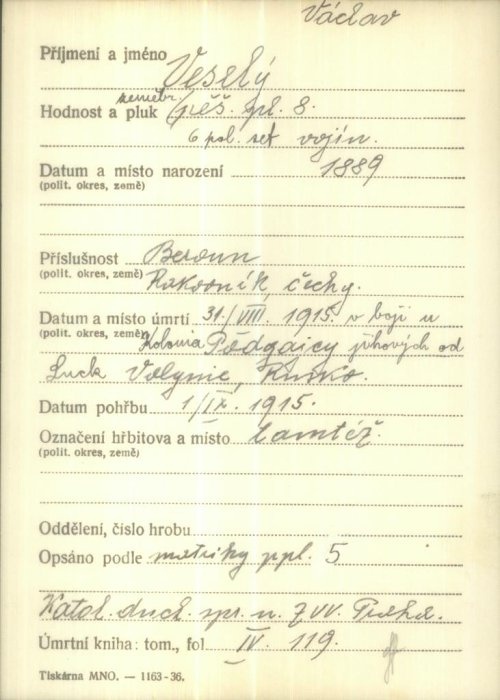 Václav
Příjmení a jméno Veselý
zeměbr.
Hodnost a pluk pěš. pl. 8.
6 pol. set. vojín.
Datum a místo narození 1889
(polit. okres, země)
Příslušnost Beroun
(polit. okres, země) Rakovník, Čechy.
Datum a místo úmrtí 31./VIII. 1915. v boji u
(polit. okres, země) Kolonia Podgaicy jihových. od
Luck Volynie, Rusko.
Datum pohřbu 1/IX. 1915.
Označení hřbitova a místo tamtéž.
(polit. okres, země)
Oddělení, číslo hrobu
Opsáno podle matriky ppl. 5
Katol. duch. spr. u. ZVV. Praha.
Úmrtní kniha: tom., fol IV. 119.
Tiskárna MNO. — 1163-36.